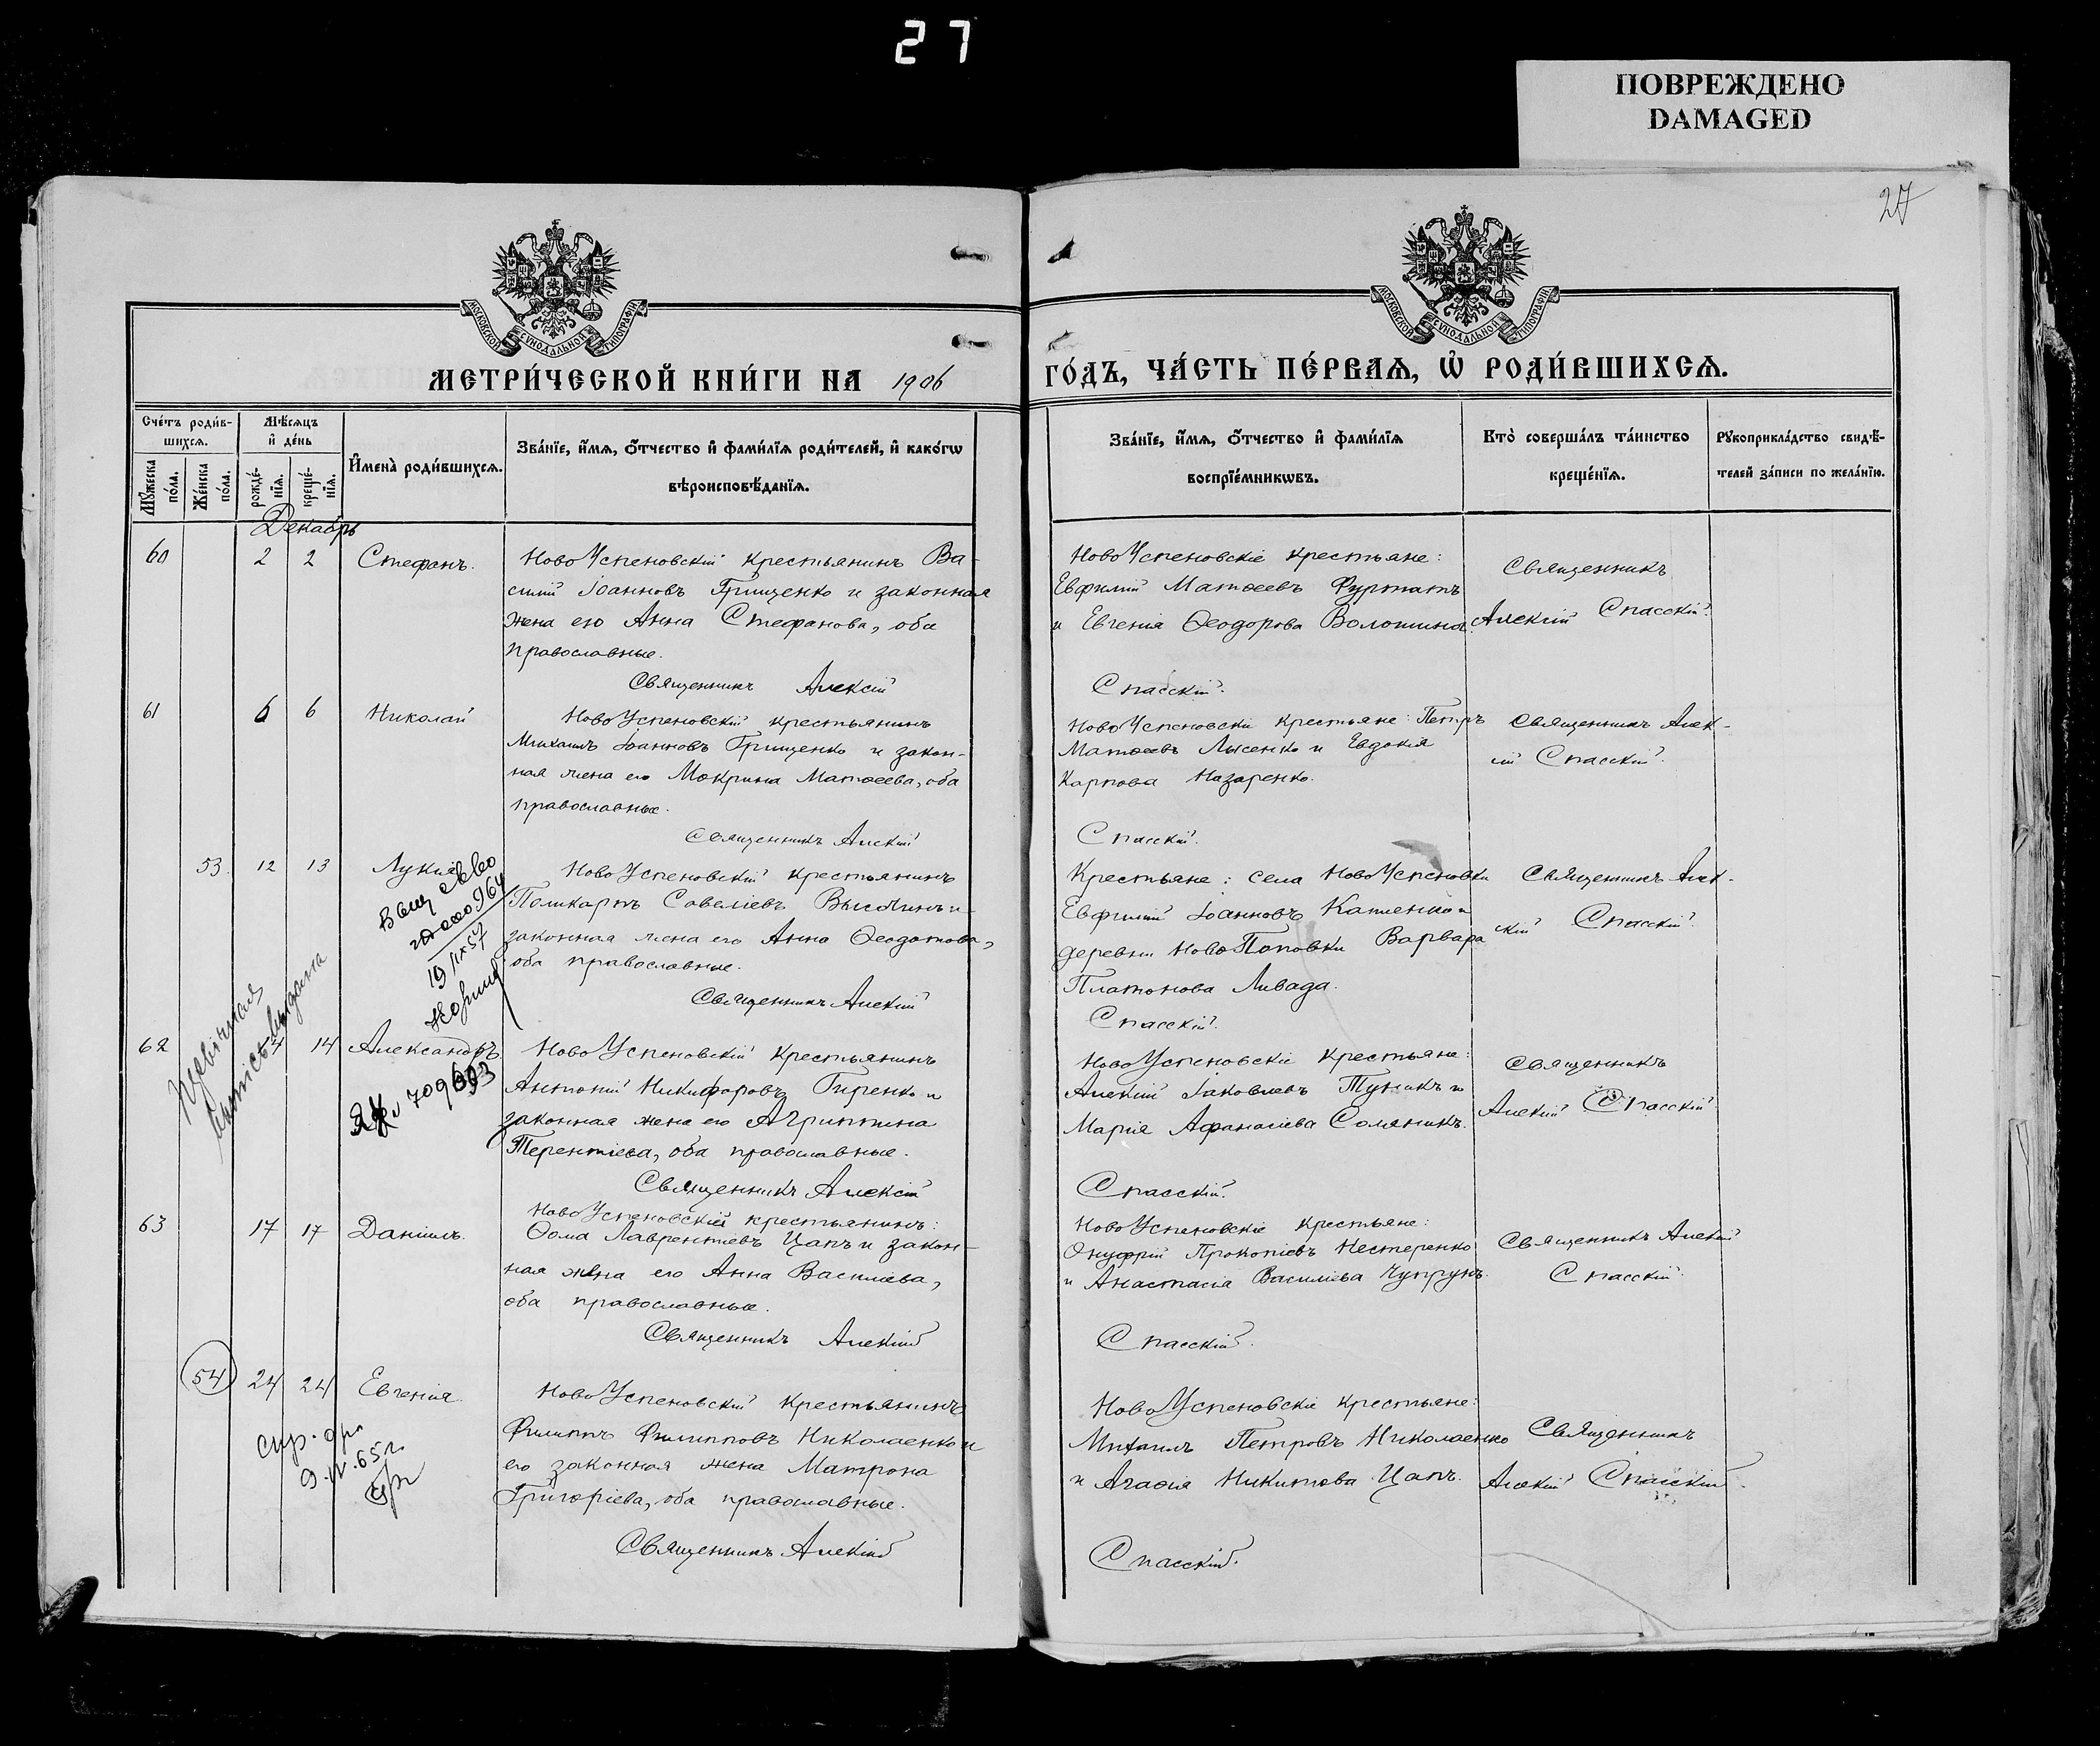 27
ПОВРЕЖДЕНО
DAMAGED
27
МОСКОВСКОЙ СѴНОДАЛЬНОЙ ТИПОГРАФІИ
МОСКОВСКОЙ СѴНОДАЛЬНОЙ ТИПОГРАФІИ
МЕТРИ́ЧЕСКОЙ КНИ́ГИ НА 1906
ГО́ДЪ, ЧА́СТЬ ПЕ́РВАѦ, Ѡ҆ РОДИ́ВШИХСѦ.
Сче́тъ роди́в-
шихсѧ.
Мѣ́сѧцъ
и҆ де́нь
Мꙋ́жеска
по́ла.
Же́нска
по́ла.
рожде́-
нїѧ.
креще́-
нїѧ.
И҆мена̀ роди́вшихсѧ.
Зва́нїе, и҆́мѧ, ѻ҆́тчество и҆ фами́лїѧ роди́телей, и҆ како́гѡ
вѣроисповѣ́данїѧ.
Зва́нїе, и҆́мѧ, ѻ҆́тчество и҆ фами́лїѧ
воспрїе́мникѡвъ.
Кто̀ соверша́лъ та́инство
креще́нїѧ.
Рꙋкоприкла́дство свидѣ́-
телей за́писи по жела́нїю.
Декабрь
60 2 2 Стефанъ.
НовоУспеновскій крестьянинъ Ва-
силій Іоанновъ Грищенко и законная
жена его Анна Стефанова, оба
православные.
Священникъ Алексій
НовоУспеновскіе крестьяне:
Евфимій Матѳеевъ Фурматъ
и Евгенія Ѳеодорова Волошина.
Спасскій.
Священникъ
Алексій Спасскій.
61 6 6 Николай
НовоУспеновскій крестьянинъ
Михаилъ Іоанновъ Грищенко и закон-
ная жена его Мокрина Матѳеева, оба
православные.
Священникъ Алексій
НовоУспеновскіе крестьяне: Петръ
Матѳеевъ Лысенко и Евдокія
Карпова Назаренко.
Спасскій.
Священникъ Алек-
сій Спасскій.
53 12 13 Лукія
19 IX 57
НовоУспеновскій крестьянинъ
Поликарпъ Савеліевъ
законная жена его Анна Ѳеодотова,
оба православные.
Священникъ Алексій
Крестьяне: села НовоУспеновки
Евфимій Іоанновъ
деревни НовоПоповки Варвара
Платонова Ливада.
Спасскій.
Священникъ Алек-
сій Спасскій.
62 14 Александръ
НовоУспеновскій крестьянинъ
Антоній Никифоровъ Гиренко и
законная жена его Агриппина
Терентіева, оба православные.
Священникъ Алексій
НовоУспеновскіе крестьяне:
Алексій Іаковлевъ Тупикъ и
Марія Афанасіева Соляникъ.
Спасскій.
Священникъ
Алексій Спасскій
63 17 17 Даніилъ.
НовоУспеновскій крестьянинъ:
Ѳома Лаврентіевъ Цапъ и закон-
ная жена его Анна Василіева,
оба православные.
Священникъ Алексій
НовоУспеновскіе крестьяне:
Онуфрій Прокопіевъ Нестеренко
и Анастасія Василіева Чупрунъ.
Спасскій.
Священникъ Алексій
Спасскій.
54 24 24 Евгенія
НовоУспеновскій крестьянинъ
Филиппъ Филипповъ Николаенко и
его законная жена Матрона
Григоріева, оба православные.
Священникъ Алексій
НовоУспеновскіе крестьяне:
Михаилъ Петровъ Николаенко
и Агаѳія Никитова Цапъ.
Спасскій.
Священникъ
Алексій Спасскій.